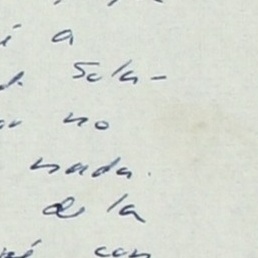 a
Sola-
no
nada.
de la
con